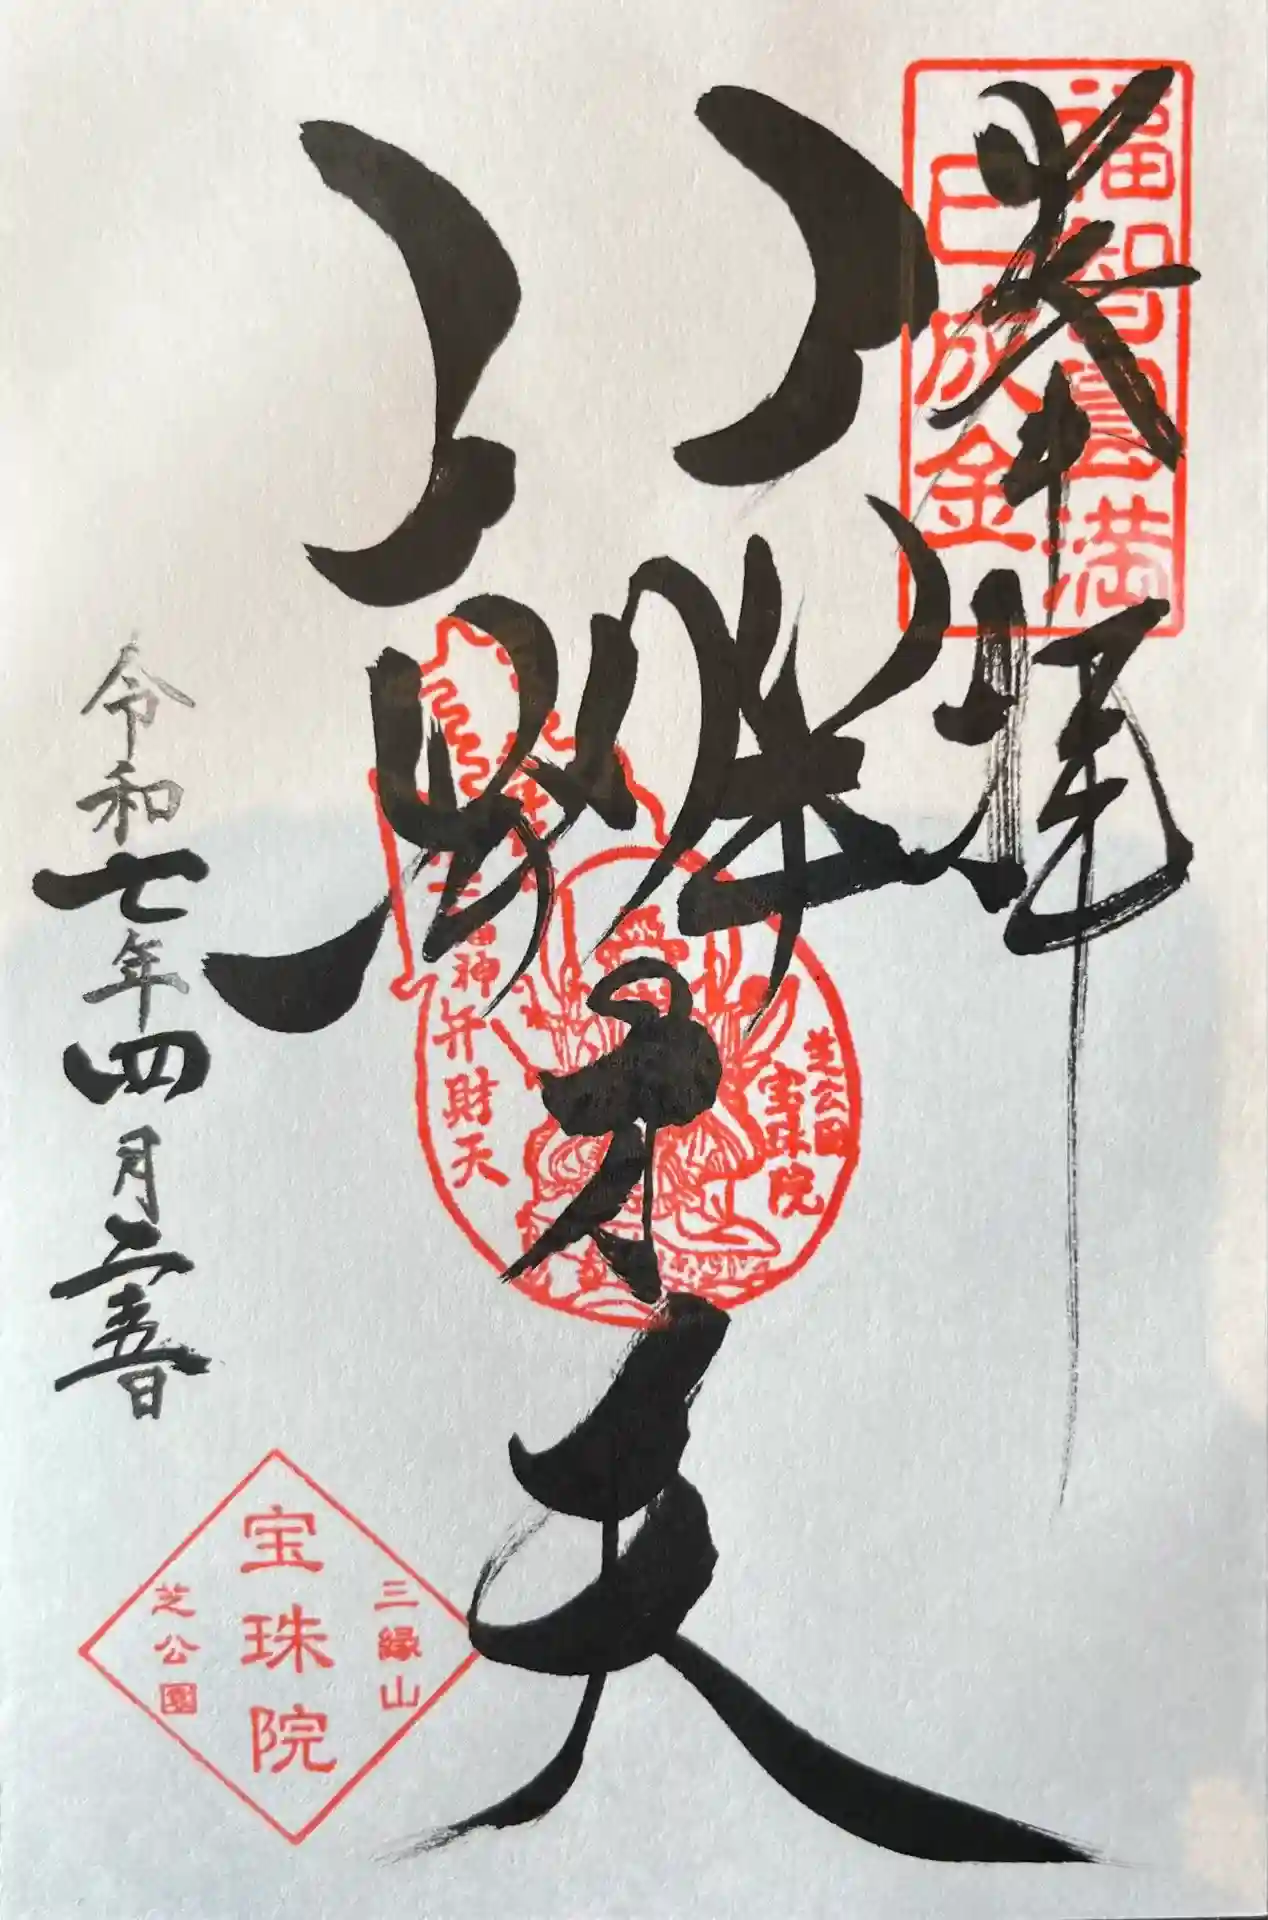 奉拝
福智円満
巳成金
辨才天
芝公園
宝珠院
福神
弁財天
令和七年四月二十五日
三縁山
宝珠院
芝公園